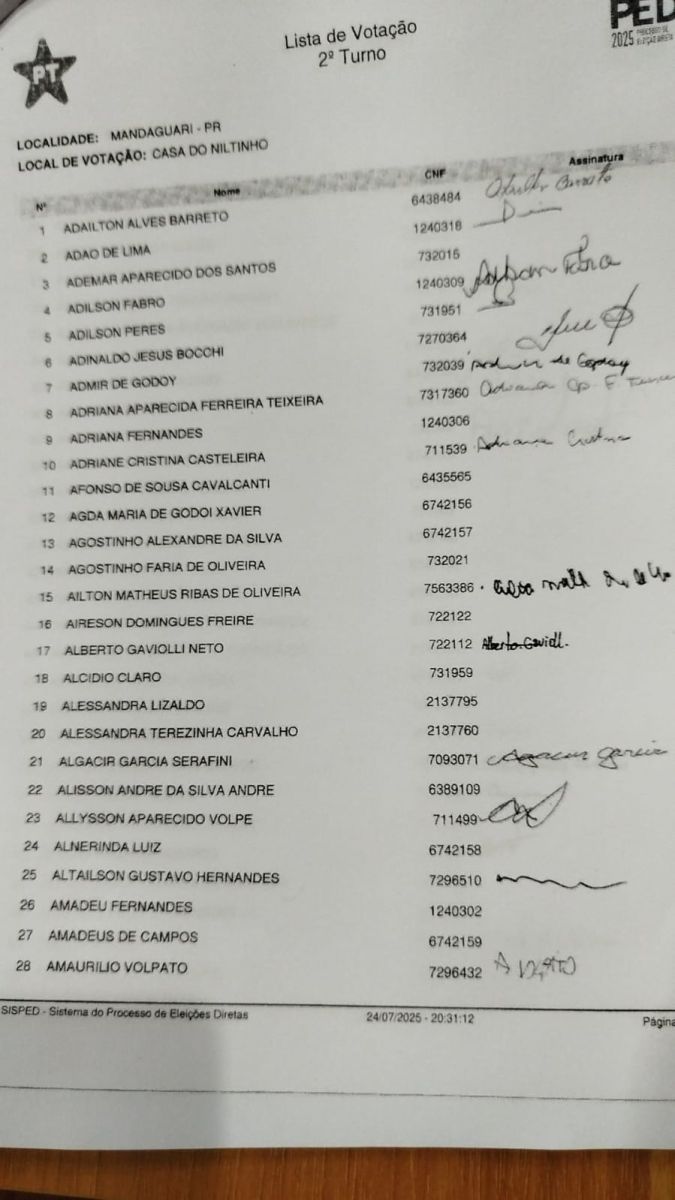 PT
Lista de Votação
2º Turno
PED
2025 PROCESSO DE ELEIÇÃO DIRETA
LOCALIDADE: MANDAGUARI - PR
LOCAL DE VOTAÇÃO: CASA DO NILTINHO
Nº Nome CNF Assinatura
1 ADAILTON ALVES BARRETO 6438484 Barreto
2 ADAO DE LIMA 1240318
3 ADEMAR APARECIDO DOS SANTOS 732015
4 ADILSON FABRO 1240309
5 ADILSON PERES 731951
6 ADINALDO JESUS BOCCHI 7270364
7 ADMIR DE GODOY 732039 de Godoy
8 ADRIANA APARECIDA FERREIRA TEIXEIRA 7317360 Adriana Ap. F
9 ADRIANA FERNANDES 1240306
10 ADRIANE CRISTINA CASTELEIRA 711539 Adriane Cristina
11 AFONSO DE SOUSA CAVALCANTI 6435565
12 AGDA MARIA DE GODOI XAVIER 6742156
13 AGOSTINHO ALEXANDRE DA SILVA 6742157
14 AGOSTINHO FARIA DE OLIVEIRA 732021
15 AILTON MATHEUS RIBAS DE OLIVEIRA 7563386
16 AIRESON DOMINGUES FREIRE 722122
17 ALBERTO GAVIOLLI NETO 722112 Alberto Gaviolli
18 ALCIDIO CLARO 731959
19 ALESSANDRA LIZALDO 2137795
20 ALESSANDRA TEREZINHA CARVALHO 2137760
21 ALGACIR GARCIA SERAFINI 7093071 Algacir Garcia
22 ALISSON ANDRE DA SILVA ANDRE 6389109
23 ALLYSSON APARECIDO VOLPE 711499
24 ALNERINDA LUIZ 6742158
25 ALTAILSON GUSTAVO HERNANDES 7296510
26 AMADEU FERNANDES 1240302
27 AMADEUS DE CAMPOS 6742159
28 AMAURILIO VOLPATO 7296432
SISPED - Sistema do Processo de Eleições Diretas 24/07/2025 - 20:31:12 Página